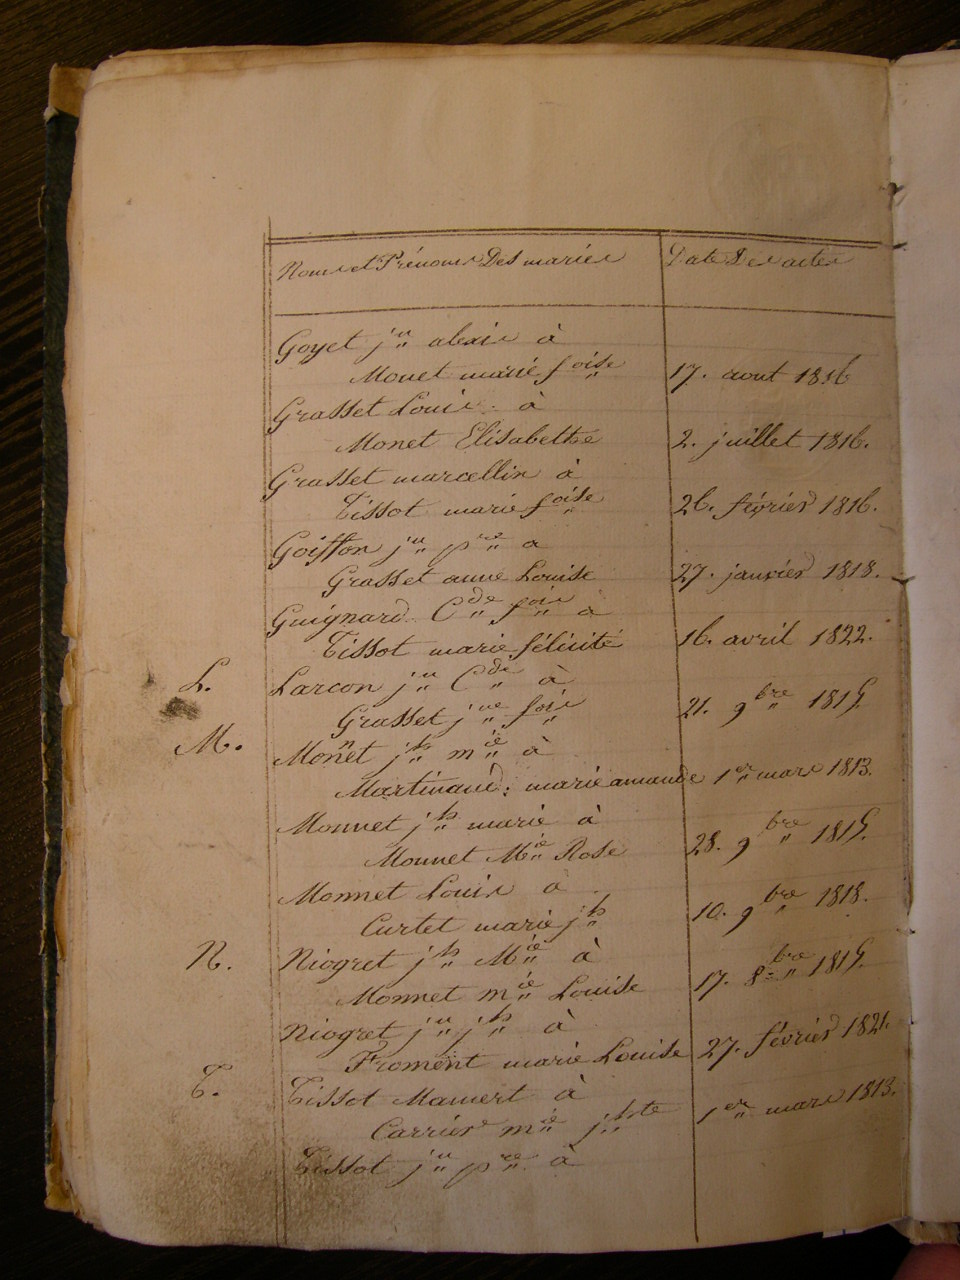 Noms et Prénoms Des mariés Date Des actes
Goyet jn alexis à
Monet marie foise 17. aout 1816
Grasset Louis à
Monet Elisabethe 2. juillet 1816.
Grasset marcellin à
Tissot marie foise 26. février 1816.
Goiffon jn pre a
Grasset anne Louise 27. janvier 1818.
Guignard Cde fois à
Tissot marie félicité 16. avril 1822.
L. Larcon jn Cde à
Grasset jne foise 21. 9bre 1815.
M. Monnet jh mie à
Martinaud: marie amande 1er mars 1813.
Monnet jh marie à
Monnet Mie Rose 28. 9bre 1815.
Monnet Louis a
Curtet marie jh 10. 9bre 1818.
N. Niogret jh Mie à
Monnet mie Louise 17. 8bre 1815.
Niogret jn jh à
Froment marie Louise 27. février 1821.
T. Tissot Mamert à
Carrier mie jhte 1er mars 1813.
Tissot jn pre à